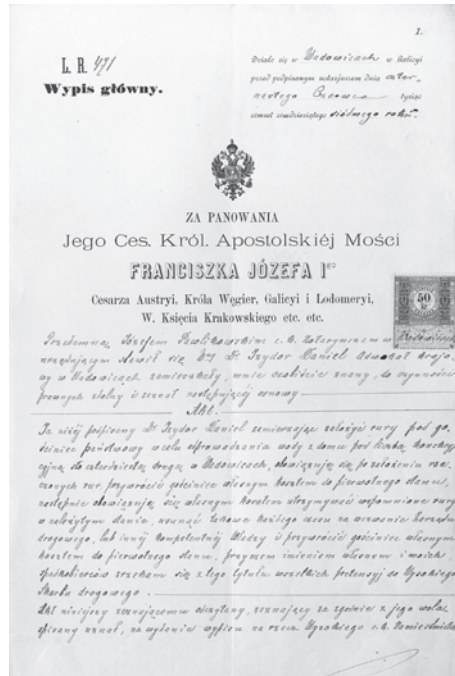 1.
L. R. 471
Wypis główny.
Działo się w Wadowicach w Galicyi
przed podpisanym notaryuszem dnia czter-
nastego Czerwca tysiąc
ośmset ośmdziesiątego siódmego roku.
ZA PANOWANIA
Jego Ces. Król. Apostolskiéj Mości
FRANCISZKA JÓZEFA Igo
Cesarza Austryi, Króla Węgier, Galicyi i Lodomeryi,
W. Księcia Krakowskiego etc. etc.
50
Przedemną Józefem c. k. Notaryuszem w
urzędującym stawił się Dr Izydor Daniel Adwokat krajo-
wy w Wadowicach zamieszkały, mnie osobiście znany, do czynności
prawnych zdolny i zeznał następującéj osnowy
Akt.
Ja niżéj podpisany Dr Izydor Daniel zamierzając założyć rury pod go-
ściniec państwowy w celu odprowadzania wody z domu pod liczbą konskryp-
cyjną sto czterdzieści drogą w Wadowicach, obowiązuję się po założeniu rze-
czonych rur przywrócić gościniec własnym kosztem do pierwotnego stanu,
następnie obowiązuję się własnym kosztem utrzymywać wspomnione rury
w należytym stanie, usunąć takowe każdego czasu na wezwanie Zarządu
drogowego, lub innéj kompetentnéj Władzy i przywrócić gościniec własnym
kosztem do pierwotnego stanu, przyczem imieniem własnem i moich
spadkobierców zrzekam się z tego tytułu wszelkich pretensyj do Wysokiego
Skarbu drogowego.
Akt niniejszy zeznającemu odczytany, zeznający za zgodnie z jego wolą
spisany uznał, na wydanie wypisu na rzecz Wysokiego c. k. Namiestnictwa